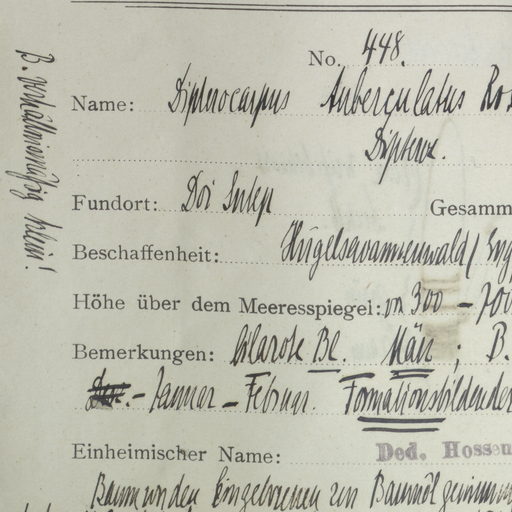 No. 448.
Name: Dipterocarpus tuberculatus Rox
Dipteroc.
Fundort: Doi Sutep Gesamm
Beschaffenheit: Hügelsavannenwald/
Höhe über dem Meeresspiegel: 300 – 700
Bemerkungen: blarote Bl. März ; B.
– Januar – Februar. Formationsbildender
Einheimischer Name: Ded. Hosseu
Baum von den Eingeborenen zur Baumöl
B. verhältnismäßig klein!